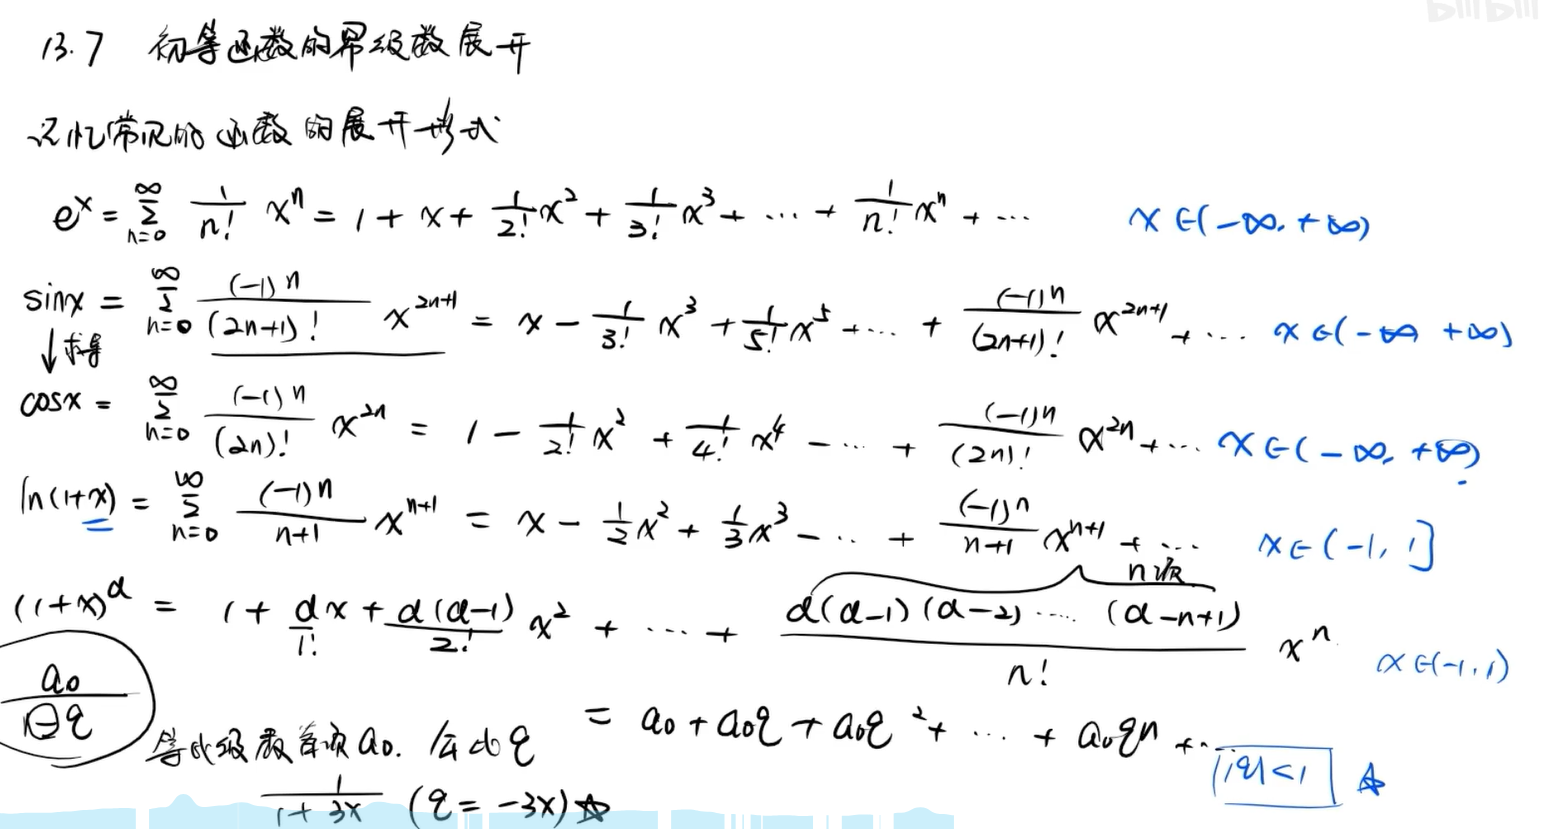 bilibili
13.7 初等函数的幂级数展开
记忆常见的函数的展开形式
e^x = ∑_{n=0}^{∞} 1/n! x^n = 1 + x + 1/2! x^2 + 1/3! x^3 + ... + 1/n! x^n + ... x∈(-∞, +∞)
sinx = ∑_{n=0}^{∞} (-1)^n/(2n+1)! x^{2n+1} = x - 1/3! x^3 + 1/5! x^5 + ... + (-1)^n/(2n+1)! x^{2n+1} + ... x∈(-∞ +∞)
↓求导
cosx = ∑_{n=0}^{∞} (-1)^n/(2n)! x^{2n} = 1 - 1/2! x^2 + 1/4! x^4 - ... + (-1)^n/(2n)! x^{2n} + ... x∈(-∞, +∞)
ln(1+x) = ∑_{n=0}^{∞} (-1)^n/(n+1) x^{n+1} = x - 1/2 x^2 + 1/3 x^3 - ... + (-1)^n/(n+1) x^{n+1} + ... x∈(-1, 1]
n项
(1+x)^α = 1 + αx/1! + α(α-1)/2! x^2 + ... + α(α-1)(α-2)....(α-n+1)/n! x^n x∈(-1,1)
a0/(1-q)
等比级数首项a0. 公比q = a0 + a0q + a0q^2 + ... + a0q^n + ... |q|<1 ☆
1/(1+3x) (q = -3x) ☆